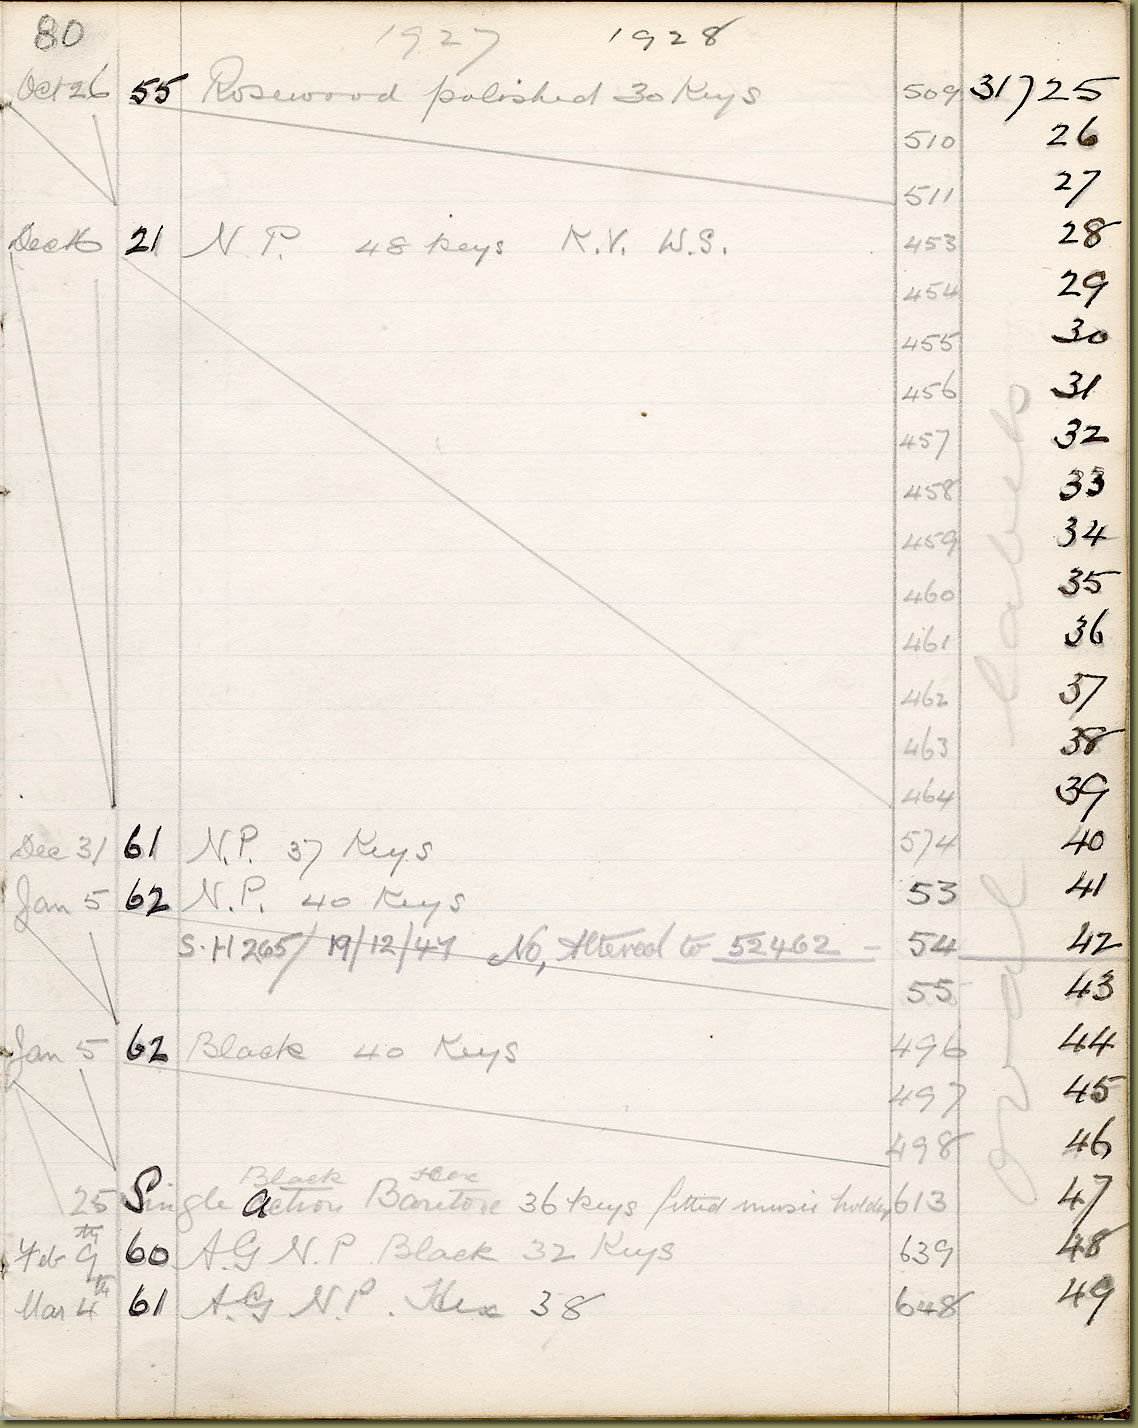 80 1927 1928
Oct 26 55 Rosewood polished 30 Keys 509 31725
510 26
511 27
Dec 16 21 N.P. 48 Keys K.V. W.S. 453 28
454 29
455 30
456 31
457 32
458 33
459 34
460 35
461 36
462 37
463 38
464 39
Dec 31 61 N.P. 37 Keys 574 40
Jan 5 62 N.P. 40 Keys 53 41
S.H 265/ 19/12/47 No, Altered to 52462 - 54 42
55 43
Jan 5 62 Black 40 Keys 496 44
497 45
498 46
Black Hex
25 Single action Baritone 36 keys fitted music holder 613 47
Feb 9th 60 A.G N.P Black 32 Keys 639 48
Mar 4th 61 A.G N.P. Hex 38 648 49
oval labels